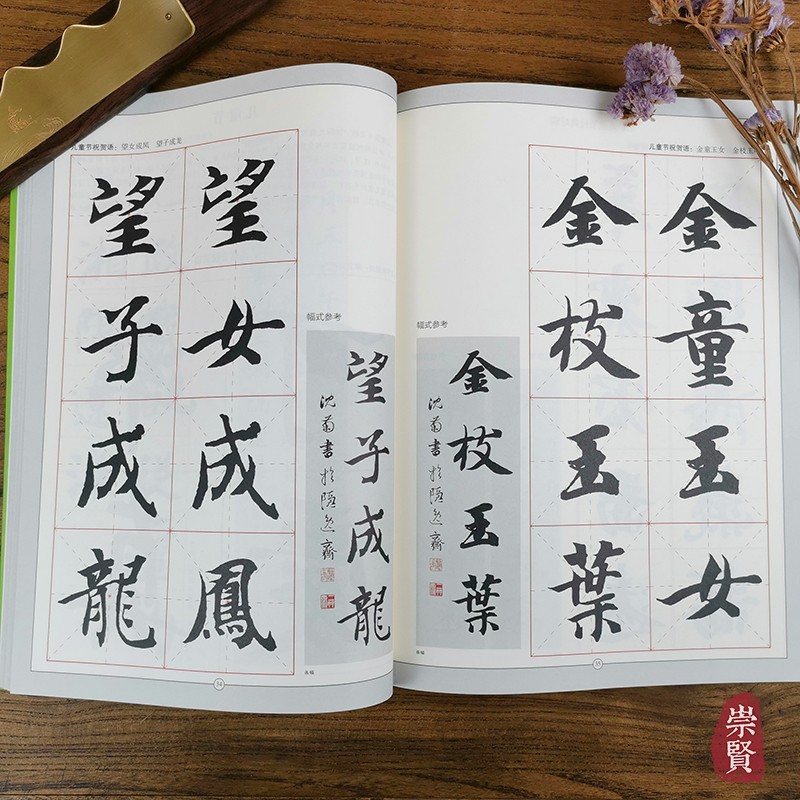 儿童节祝贺语：望女成凤 望子成龙
望女成鳳
望子成龍
幅式参考
望子成龍
沈菊書於隱逸齋
条幅
34
儿童节祝贺语：金童玉女 金枝玉
金童玉女
金枝玉葉
幅式参考
金枝玉葉
沈菊書於隱逸齋
条幅
35
崇賢